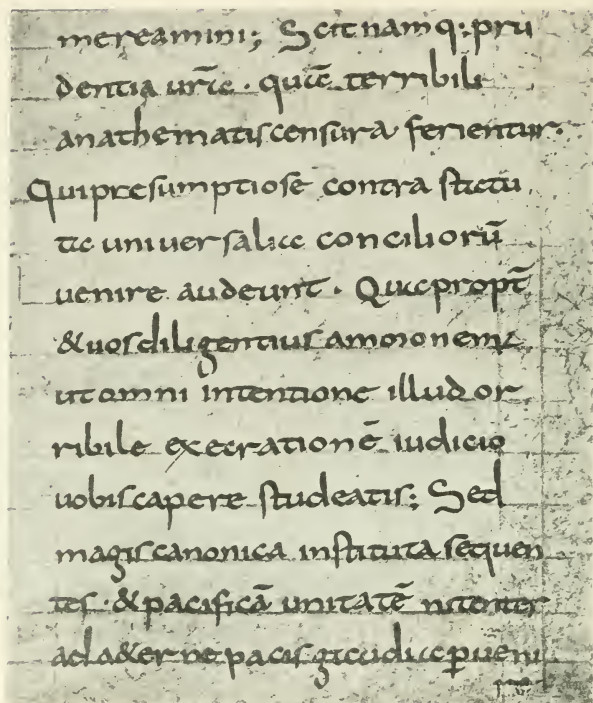 mereamini; Scit namq; pru
dentia urīc . quiē terribili
anathematis censura ferientur.
Qui presumptiose contra statu
ta universalia conciliorū
uenire audeunt . Quapropt̄
& uos diligentius ammonem
ut omni intentione illud or
ribile execrationē iudicio
uobis capere studeatis; Sed
magis canonica instituta sequen
tes . & pacificā unitatē nitenter
ad a&erne pacis gaudia pueni